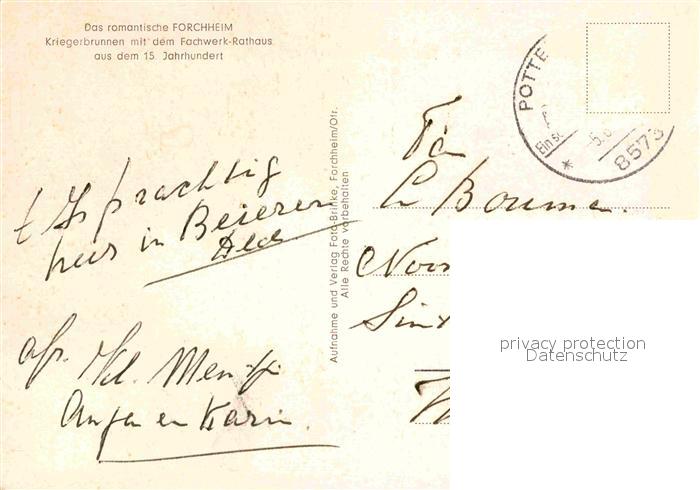 Das romantische FORCHHEIM
Kriegerbrunnen mit dem Fachwerk-Rathaus
aus dem 15. Jahrhundert
POTTE
8573
Aufnahme und Verlag Foto-Brinke, Forchheim/Ofr.
Alle Rechte vorbehalten
t Is prachtig
hier in Beieren
Fa
Bouma
Noor
Sint
W
afz.
en Karin
privacy protection
Datenschutz